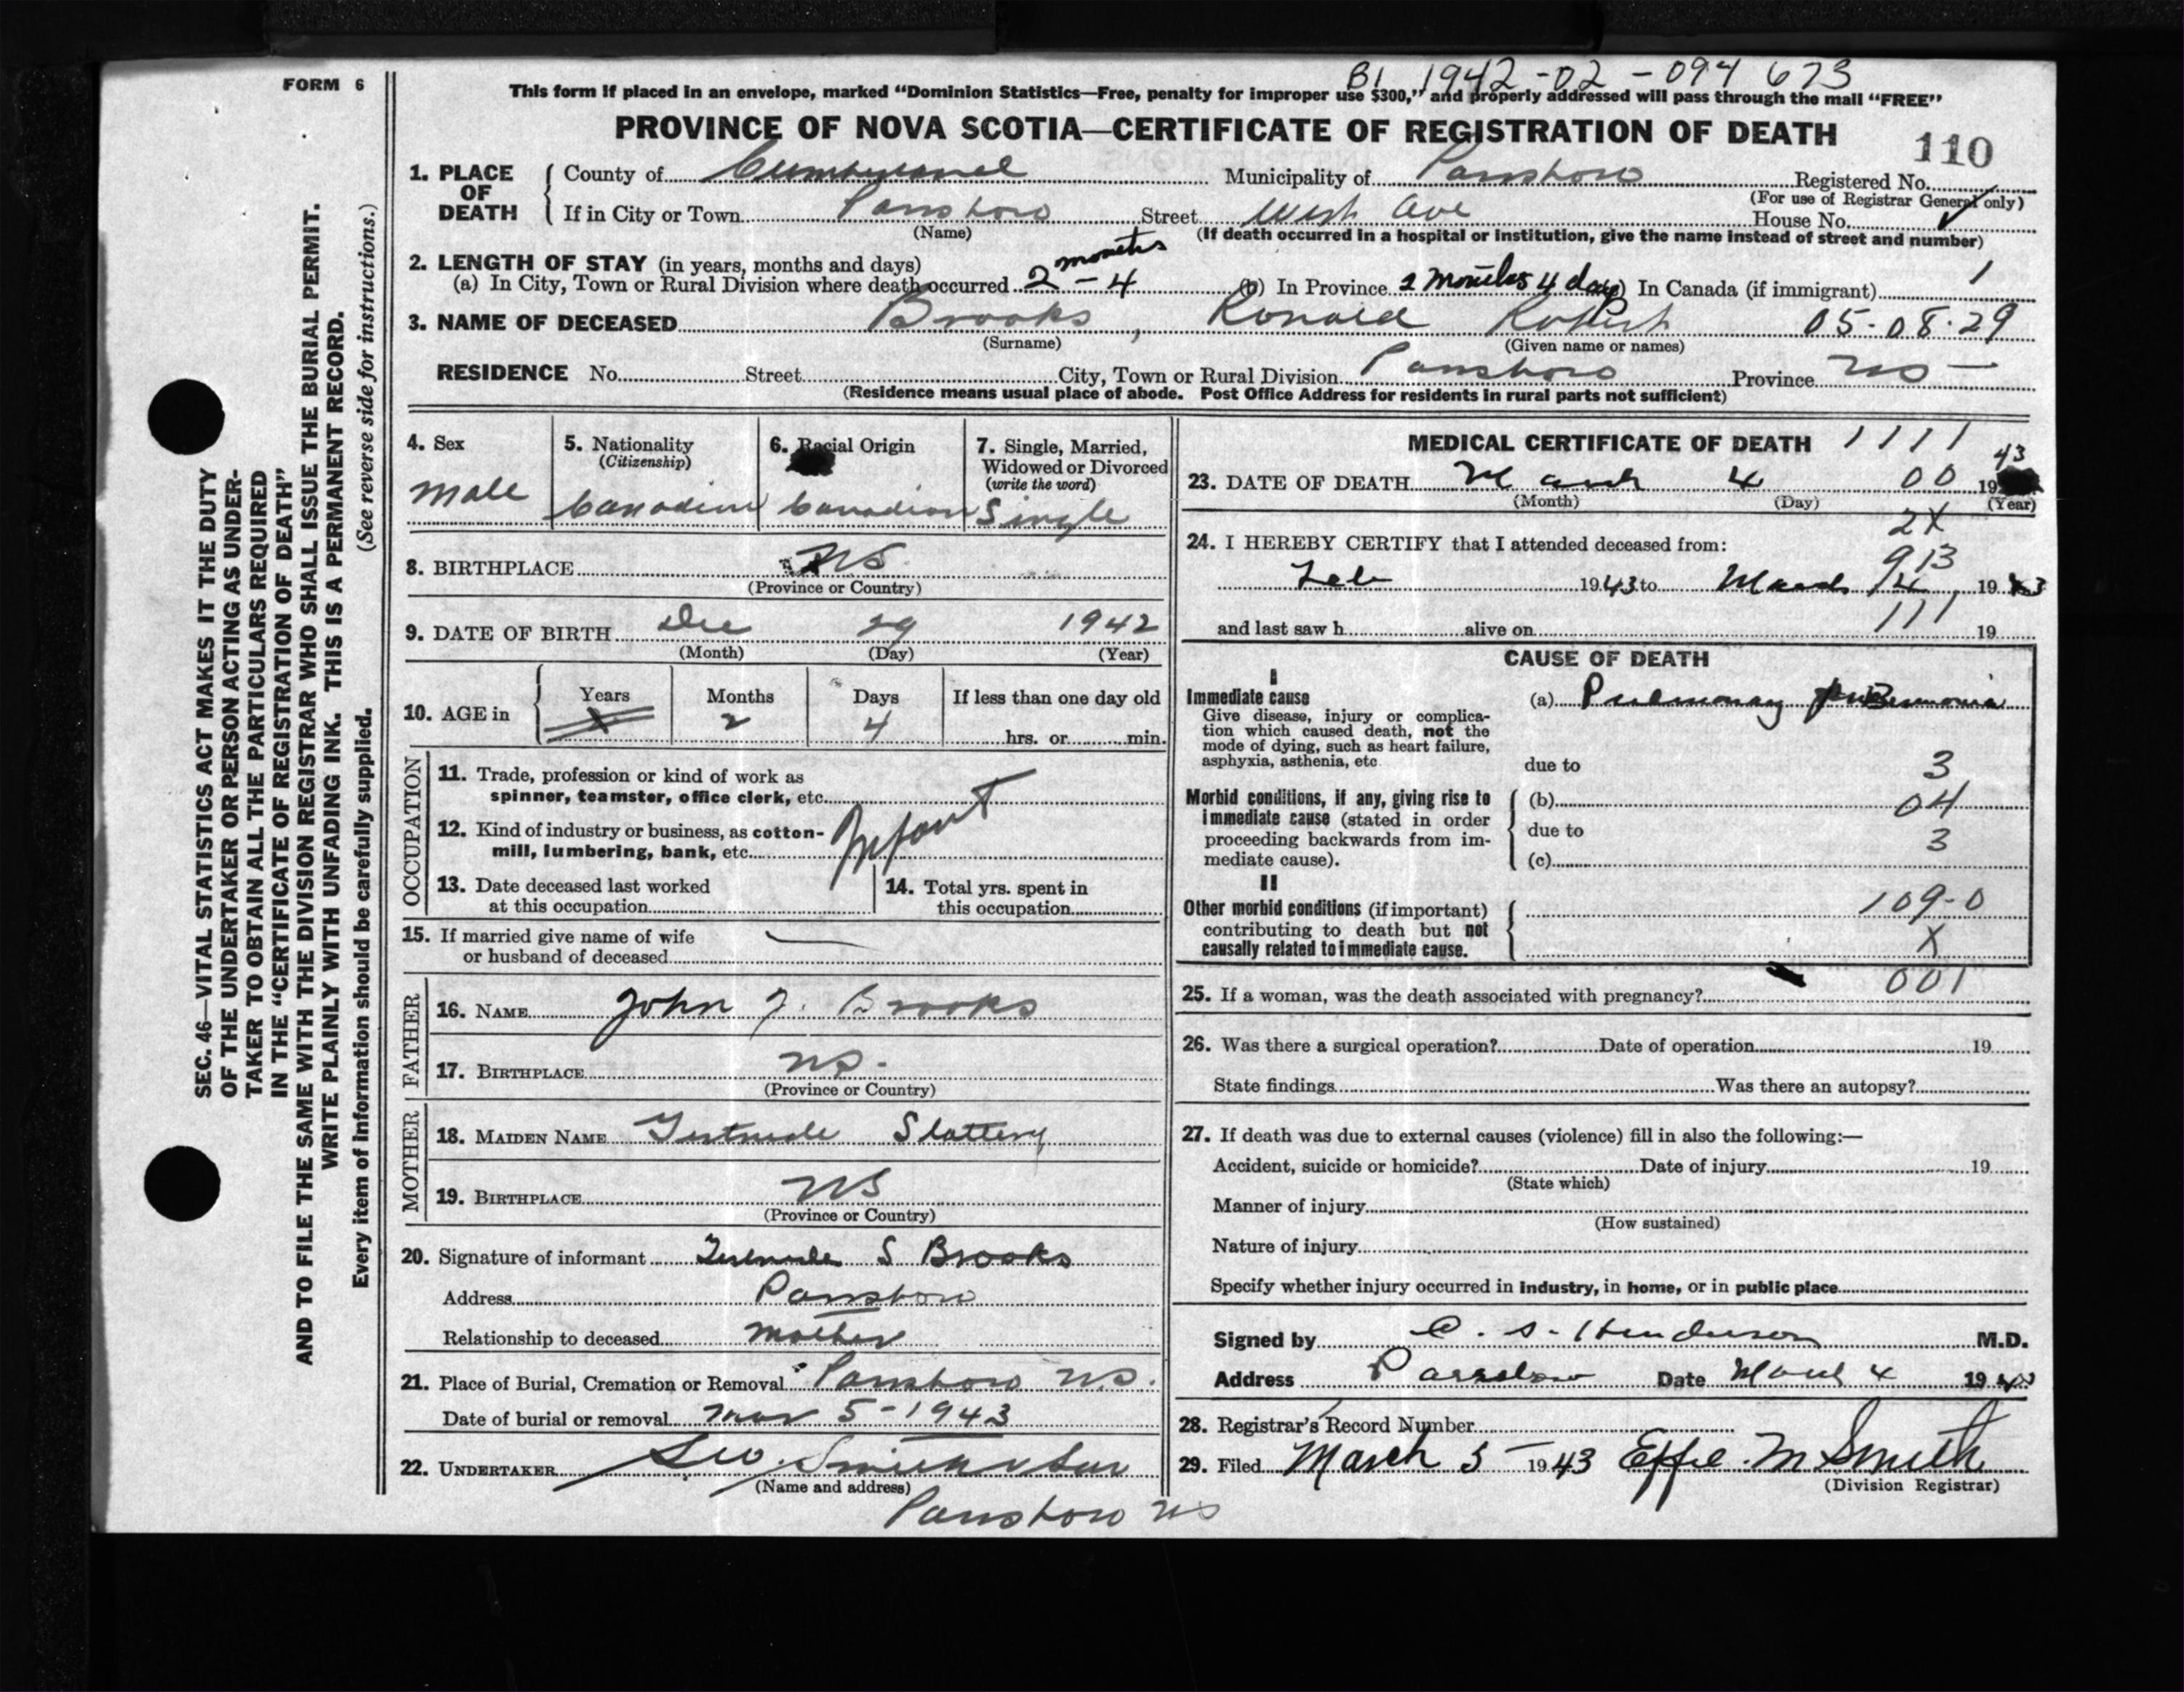 FORM 6
B1 1942-02-094 673
This form if placed in an envelope, marked “Dominion Statistics—Free, penalty for improper use $300,” and properly addressed will pass through the mail “FREE”
PROVINCE OF NOVA SCOTIA—CERTIFICATE OF REGISTRATION OF DEATH
110
1. PLACE OF DEATH
County of Cumberland Municipality of Parrsboro Registered No.
(For use of Registrar General only)
If in City or Town Parrsboro Street West Ave House No.
(Name) (If death occurred in a hospital or institution, give the name instead of street and number)
2. LENGTH OF STAY (in years, months and days)
(a) In City, Town or Rural Division where death occurred 2 months - 4 (b) In Province 2 months 4 days In Canada (if immigrant) 1
3. NAME OF DECEASED Brooks, Ronald Robert 05-08-29
(Surname) (Given name or names)
RESIDENCE No. Street City, Town or Rural Division Parrsboro Province NS
(Residence means usual place of abode. Post Office Address for residents in rural parts not sufficient)
4. Sex
Male
5. Nationality
(Citizenship)
Canadian
6. Racial Origin
Canadian
7. Single, Married,
Widowed or Divorced
(write the word)
Single
8. BIRTHPLACE NS
(Province or Country)
9. DATE OF BIRTH Dec 29 1942
(Month) (Day) (Year)
10. AGE in
Years Months Days If less than one day old
2 4 hrs. or min.
OCCUPATION
11. Trade, profession or kind of work as
spinner, teamster, office clerk, etc.
12. Kind of industry or business, as cotton-
mill, lumbering, bank, etc.
Infant
13. Date deceased last worked
at this occupation
14. Total yrs. spent in
this occupation
15. If married give name of wife
or husband of deceased
FATHER
16. NAME John J. Brooks
17. BIRTHPLACE NS.
(Province or Country)
MOTHER
18. MAIDEN NAME Gertrude Slattery
19. BIRTHPLACE NS
(Province or Country)
20. Signature of informant Gertrude S Brooks
Address Parrsboro
Relationship to deceased Mother
21. Place of Burial, Cremation or Removal Parrsboro N.S.
Date of burial or removal Mar 5-1943
22. UNDERTAKER Geo. Smith & Son
(Name and address)
Parrsboro NS
MEDICAL CERTIFICATE OF DEATH 1111
23. DATE OF DEATH March 4 00 19 43
(Month) (Day) (Year)
2X
24. I HEREBY CERTIFY that I attended deceased from:
913
Feb 1943 to March 4 19 43
111
and last saw h alive on 19
CAUSE OF DEATH
I
Immediate cause
Give disease, injury or complica-
tion which caused death, not the
mode of dying, such as heart failure,
asphyxia, asthenia, etc.
(a) Pulmonary pneumonia
due to 3
Morbid conditions, if any, giving rise to
immediate cause (stated in order
proceeding backwards from im-
mediate cause).
(b) 04
due to 3
(c)
II
Other morbid conditions (if important)
contributing to death but not
causally related to immediate cause.
109-0
X
25. If a woman, was the death associated with pregnancy? 001
26. Was there a surgical operation? Date of operation 19
State findings Was there an autopsy?
27. If death was due to external causes (violence) fill in also the following:—
Accident, suicide or homicide? Date of injury 19
(State which)
Manner of injury
(How sustained)
Nature of injury
Specify whether injury occurred in industry, in home, or in public place
Signed by C. S. Henderson M.D.
Address Parrsboro Date March 4 19 43
28. Registrar's Record Number
29. Filed March 5 1943 Effie M Smith
(Division Registrar)
SEC. 46—VITAL STATISTICS ACT MAKES IT THE DUTY
OF THE UNDERTAKER OR PERSON ACTING AS UNDER-
TAKER TO OBTAIN ALL THE PARTICULARS REQUIRED
IN THE “CERTIFICATE OF REGISTRATION OF DEATH”
AND TO FILE THE SAME WITH THE DIVISION REGISTRAR WHO SHALL ISSUE THE BURIAL PERMIT.
WRITE PLAINLY WITH UNFADING INK. THIS IS A PERMANENT RECORD.
Every item of information should be carefully supplied. (See reverse side for instructions.)